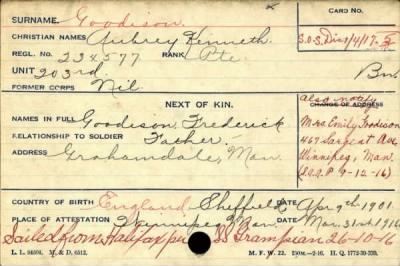 SURNAME. Goodison. CARD NO.
CHRISTIAN NAMES Aubrey Kenneth.
REGL. NO. 234577 RANK Pte. S.O.S. Dis 1/4/17-5
UNIT 203rd. Bn.
FORMER CORPS Nil
NEXT OF KIN. Also notify
CHANGE OF ADDRESS
NAMES IN FULL Goodison, Frederick Mrs Emily Goodison
RELATIONSHIP TO SOLDIER Father. 469 Sargent Ave,
ADDRESS Grahamdale, Man. Winnipeg, Man.
(D.O.P. 9-12-16)
COUNTRY OF BIRTH England Sheffield DATE Apr 9th 1901.
PLACE OF ATTESTATION Winnipeg Man DATE Mar 31st 1916
Sailed from Halifax per SS Grampian 26-10-16
L. L. 94604. M. & D. 6512. M. F. W. 22. 250M.-2-16. H. Q. 1772-39-339.